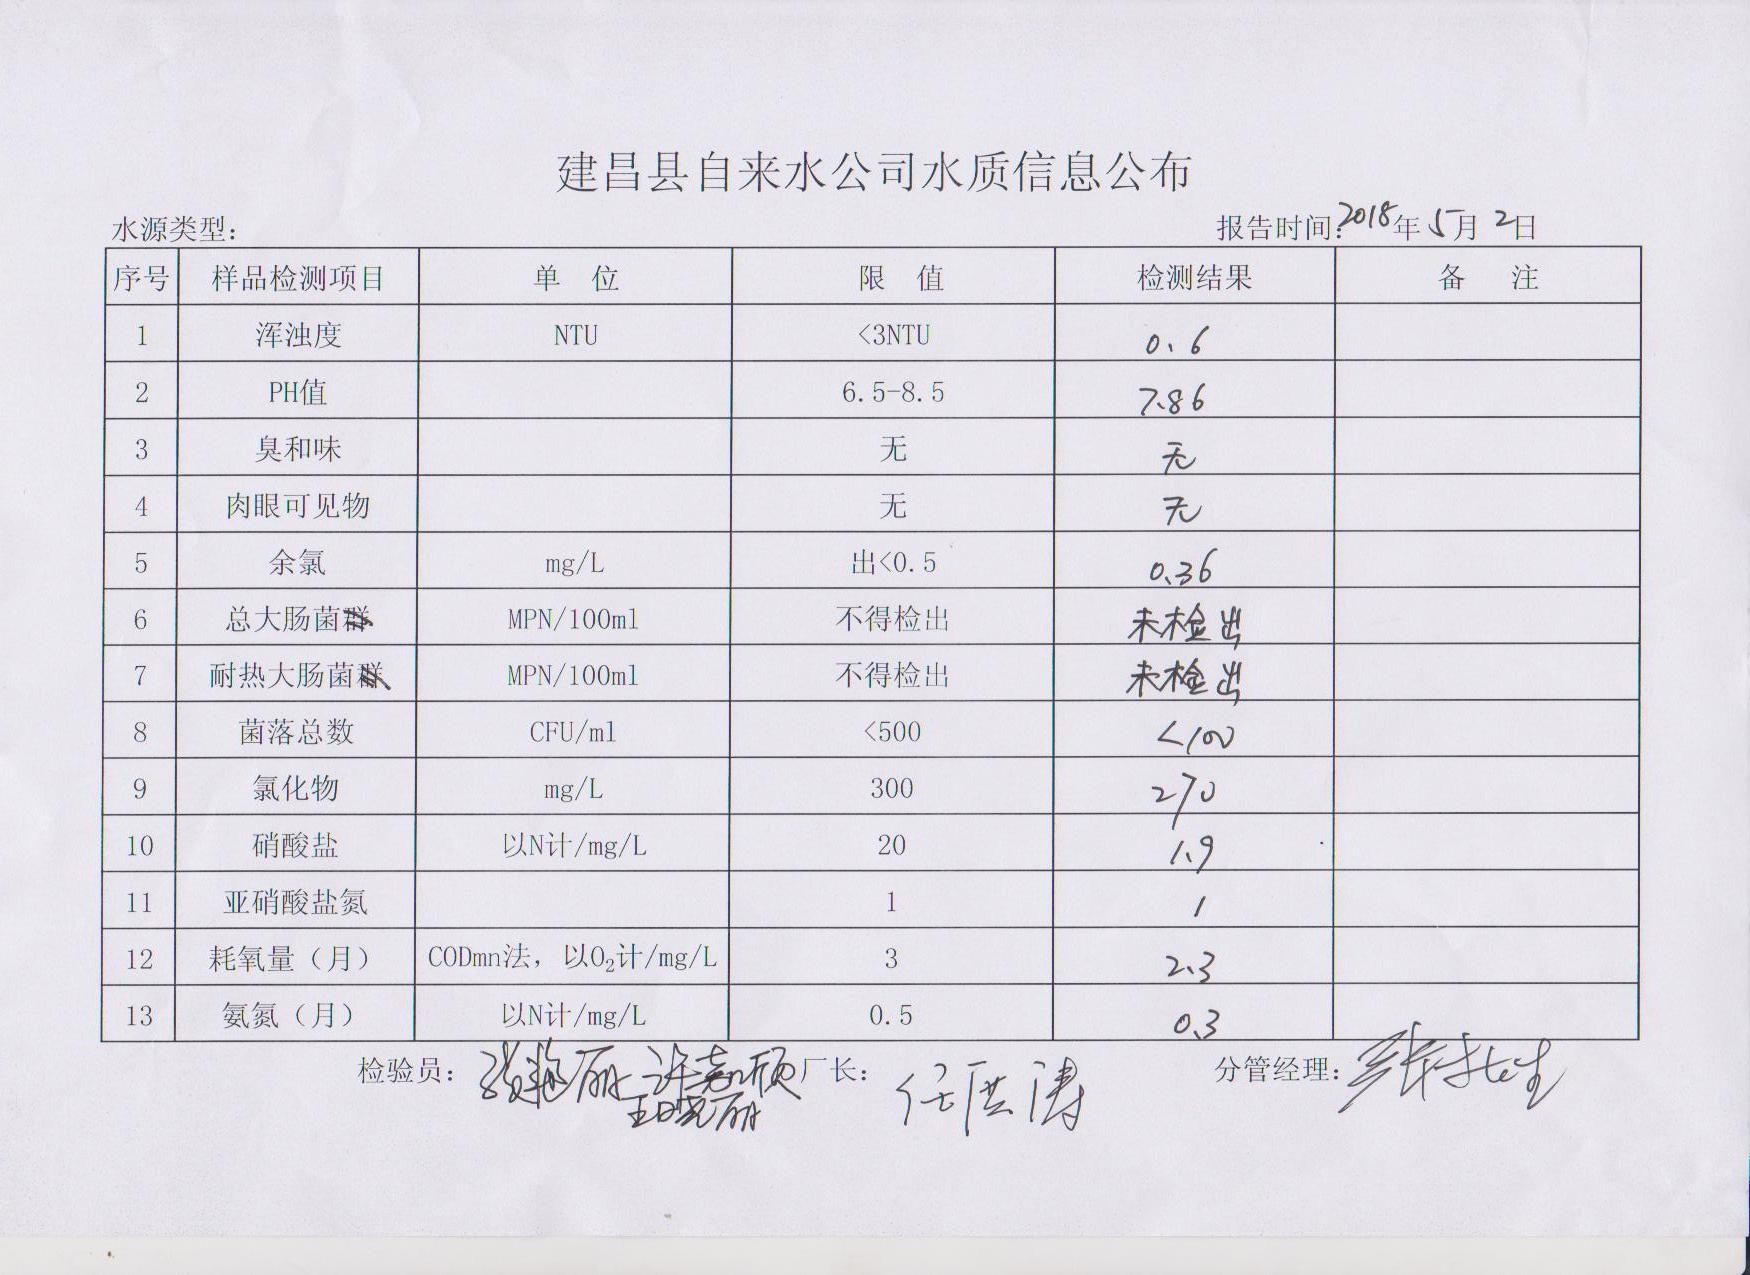 建昌县自来水公司水质信息公布
水源类型: 报告时间:2018年5月2日
序号 样品检测项目 单 位 限 值 检测结果 备 注
1 浑浊度 NTU <3NTU 0.6
2 PH值 6.5-8.5 7.86
3 臭和味 无 无
4 肉眼可见物 无 无
5 余氯 mg/L 出<0.5 0.36
6 总大肠菌群 MPN/100ml 不得检出 未检出
7 耐热大肠菌群 MPN/100ml 不得检出 未检出
8 菌落总数 CFU/ml <500 <100
9 氯化物 mg/L 300 270
10 硝酸盐 以N计/mg/L 20 1.9
11 亚硝酸盐氮 1 1
12 耗氧量（月） CODmn法, 以O₂计/mg/L 3 2.3
13 氨氮（月） 以N计/mg/L 0.5 0.3
检验员: 张艳丽 许嘉颀 厂长: 任洪涛 分管经理:
王晓丽